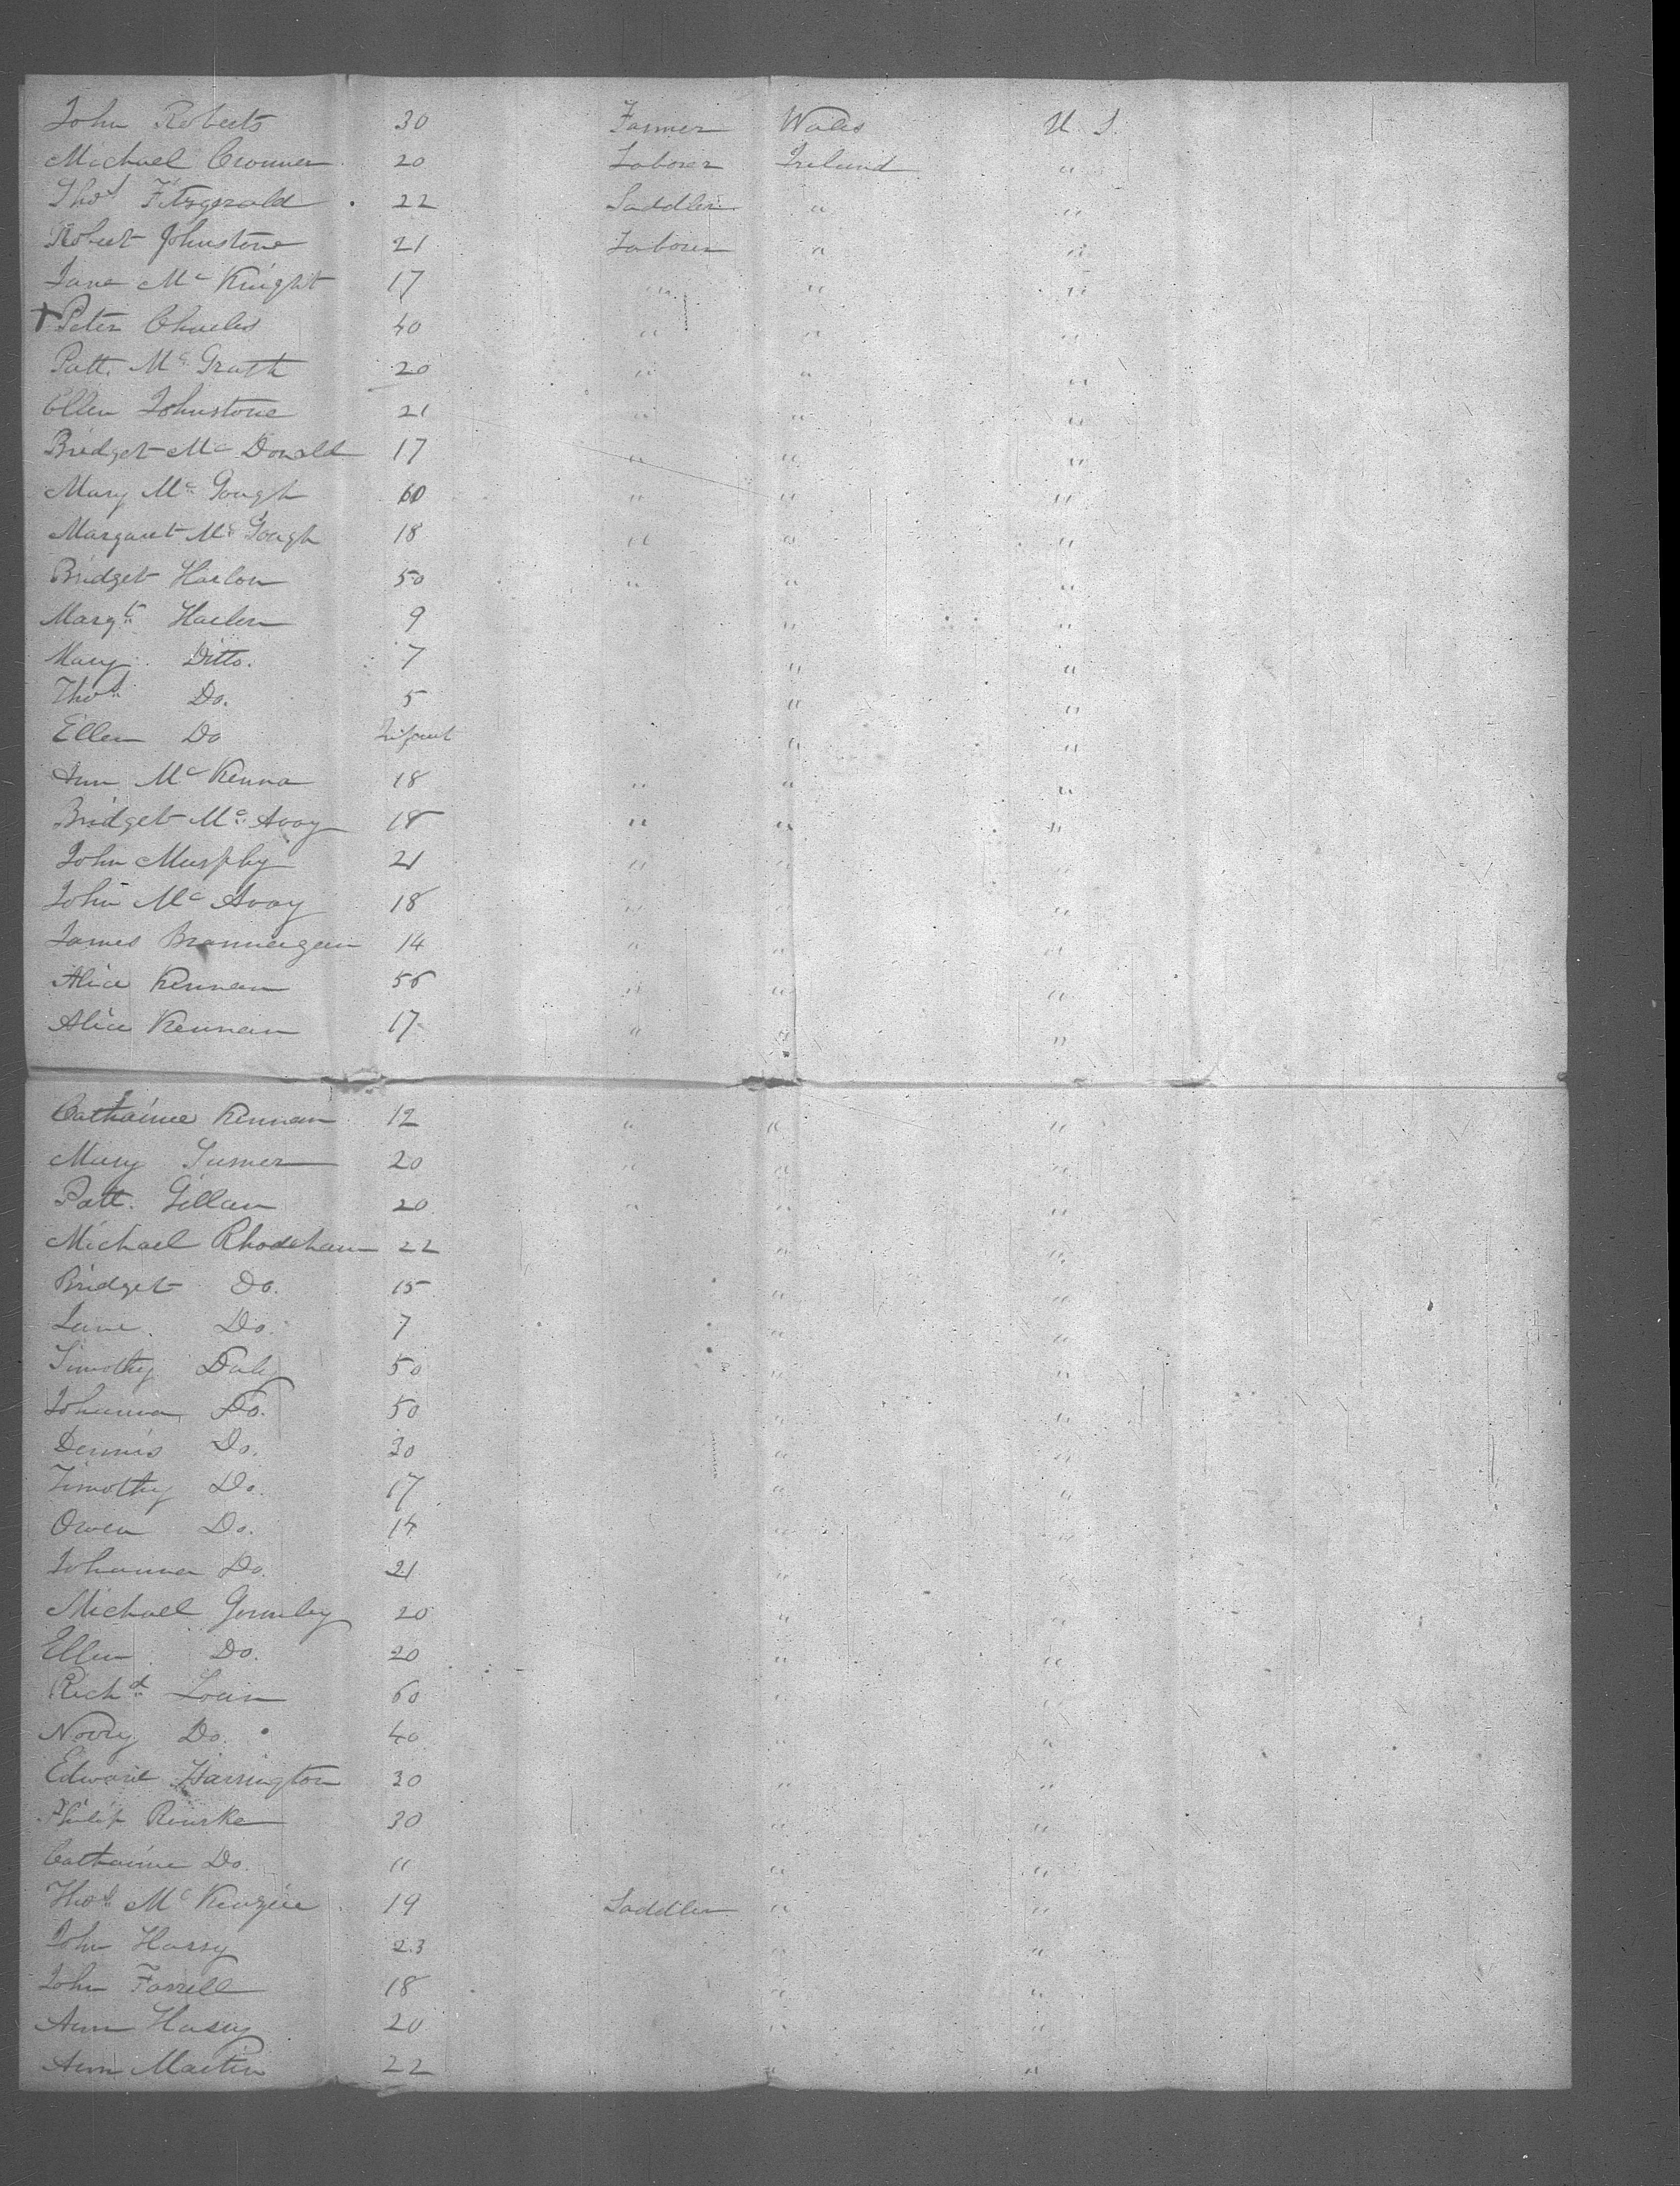 John Roberts 30 Farmer Wales U. S.
Michael Cronner 20 Laborer Ireland "
Thos Fitzgerald 22 Saddler " "
Robert Johnstone 21 Laborer " "
Jane Mc Knight 17 " " "
+ Peter Charles 40 " " "
Patt. Mc Grath 20 " " "
Ellen Johnstone 21 " " "
Bridget Mc Donald 17 " " "
Mary Mc Gough 60 " " "
Margaret Mc Gough 18 " " "
Bridget Harlon 50 " " "
Margt Harlen 9 " "
Mary Ditto. 7 " "
Thos Do. 5 " "
Ellen Do Infant " "
Ann Mc Kenna 18 " " "
Bridget Mc Avoy 18 " " "
John Murphy 21 " " "
John Mc Avoy 18 " " "
James Brannergan 14 " " "
Alice Kennan 56 " " "
Alice Kennan 17 " " "
Catharine Kennan 12 " " "
Mary Turner 20 " " "
Patt. Gillan 20 " " "
Michael 22 " "
Bridget Do. 15 " "
Jane Do. 7 " "
Timothy Daly 50 " "
Johanna Do. 50 " "
Dennis Do. 30 " "
Timothy Do. 17 " "
Owen Do. 14 " "
Johanna Do. 21 " "
Michael Gormley 20 " "
Ellen Do. 20 " "
Richd 60 " "
Do. 40 " "
Edward Harrington 30 " "
Philip Rourke 30 " "
Catharine Do. " " "
Thos Mc Kenzie 19 Saddler " "
John Harry 23 " "
John Farrell 18 " "
Ann 20 " "
Ann Martin 22 " "